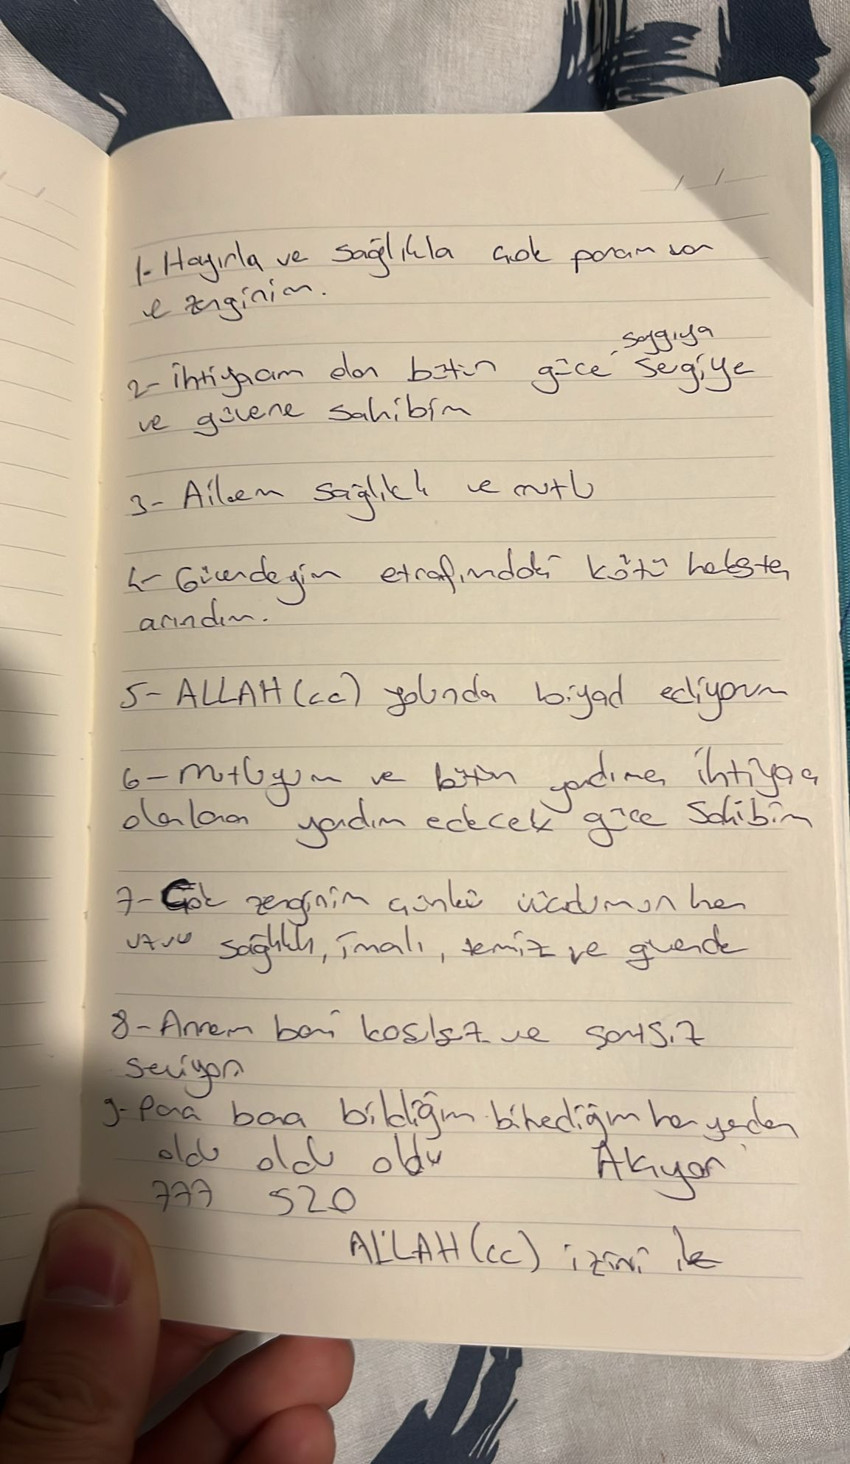 1- Hayırla ve sağlıkla çok param var
ve zenginim.
saygıya
2- ihtiyacım olan bütün güce sevgiye
ve güvene sahibim
3- Ailem sağlıklı ve mutlu
4- Güvendeyim etrafımdaki kötü
arındım.
5- ALLAH (cc) yolunda ediyorum
6- mutluyum ve bütün yardıma ihtiyacı
olanlara yardım edecek güce sahibim
7- Çok zenginim çünkü vücudumun her
uzvu sağlıklı, imalı, temiz ve güvende
8- Annem beni koşulsuz ve
seviyor
9- Para bana bildiğim bilmediğim her yerden
oldu oldu oldu Akıyor
777 520
ALLAH (cc) izini ile